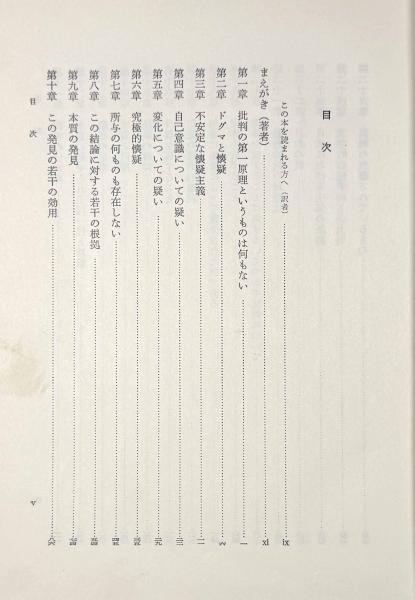 目次
この本を読まれる方へ（訳者）……ix
まえがき（著者）……xi
第一章 批判の第一原理というものは何もない……一
第二章 ドグマと懐疑……六
第三章 不安定な懐疑主義
第四章 自己意識についての疑い
第五章 変化についての疑い
第六章 究極的懐疑
第七章 所与の何ものも存在しない
第八章 この結論に対する若干の根拠
第九章 本質の発見
第十章 この発見の若干の効用
目次
v